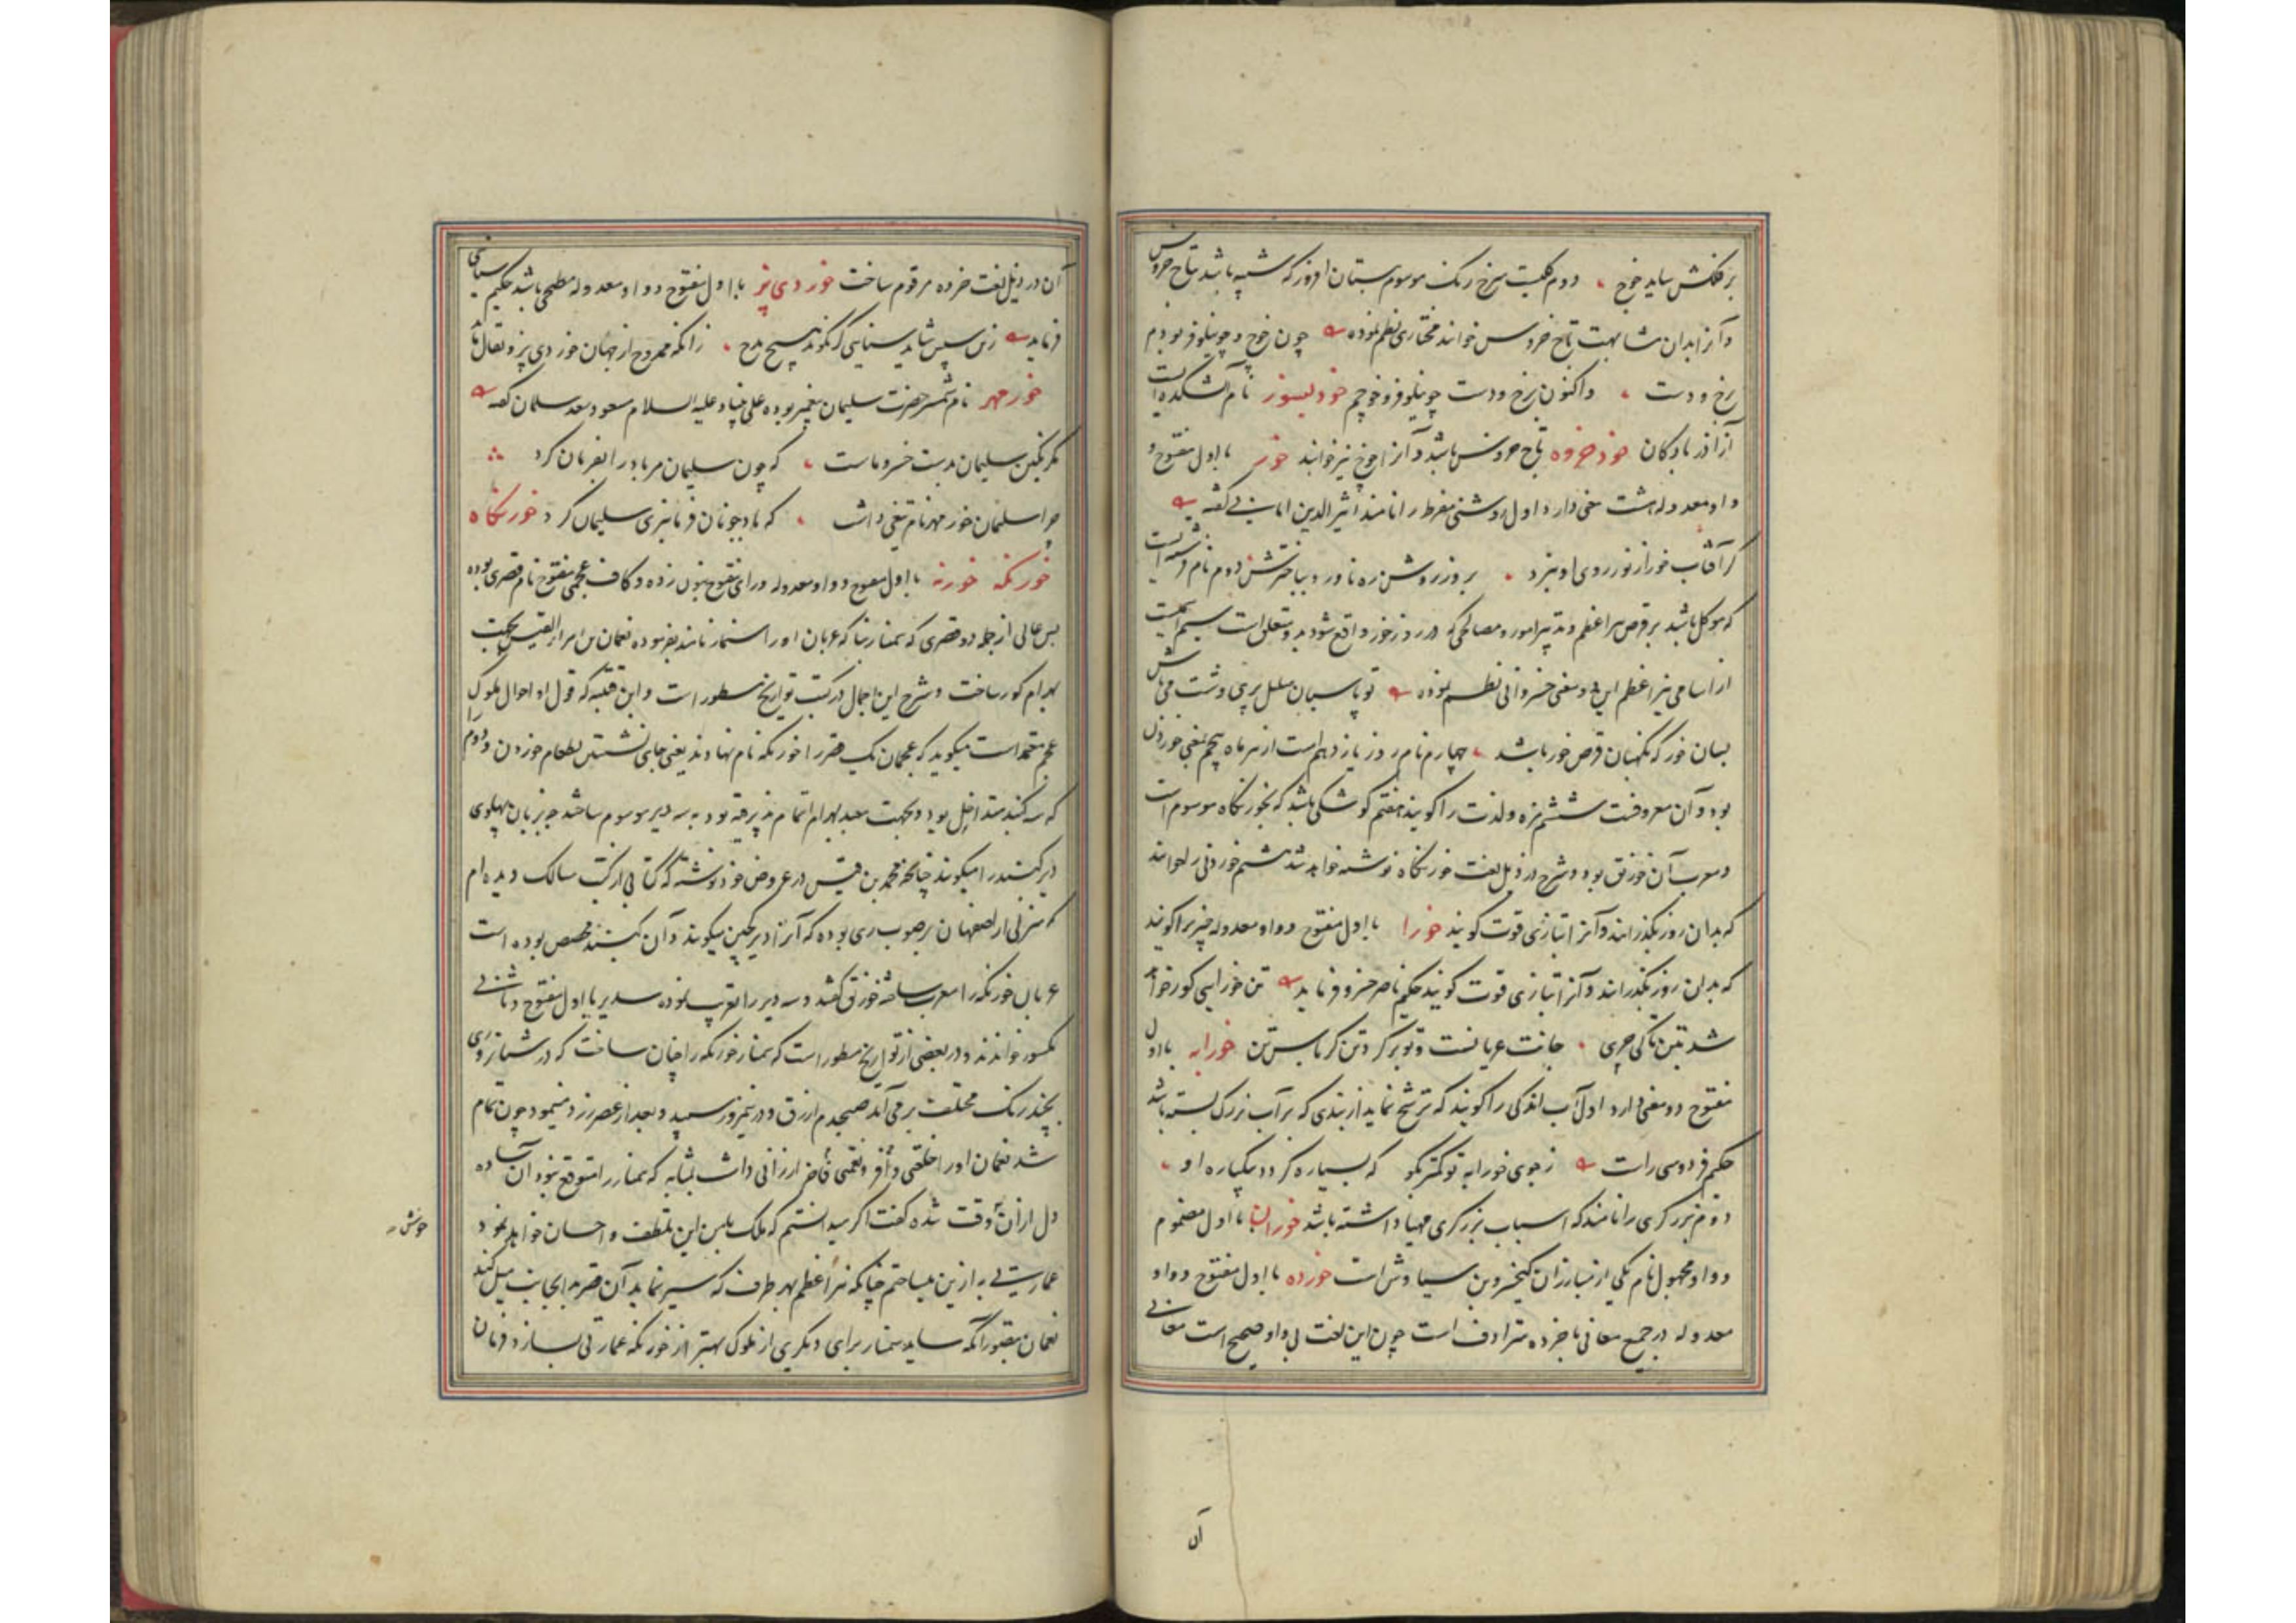 بر فلکش ساید خوچ دوم گلیست سرخ رنگ موسوم ببستان افروز که شبیه باشد بتاج خروس
و آنرا بدان مشابهت تاج خروس خوانند مختاری نظم نموده چون خوچ و چو نیلوفر بودم
رخ و دست و اکنون رخ و دست چو نیلوفر و خوچم خود بسوز نام آتشکده ایست
از آذربادکان خود خروه تاج خروس باشد و آنرا خوچ نیز خوانند خور با اول مفتوح و
واو معدوله هشت معنی دارد اول روشنی مفرط را نامند اثیر الدین اومانی گفته
کر آفتاب خور از نور روی او نبرد بروز روشن ره نا ورد دوم نام فرشته ایست
که موکل باشد بر قرص نیر اعظم و تدبیر امور و مصالحی که در روز خور واقع شود بدو متعلق است سیم اسمیست
از اسامی نیر اعظم این دو معنی خسروانی نظم نموده تو پاسبان
بسان خور که نگهبان قرص خور باشد چهارم نام روز یازدهم است از هر ماه پنجم بمعنی خوردن
بود و آن معروفست ششم مزه و لذت را گویند هفتم کوشکی باشد که بخورنگاه موسوم است
و معرب آن خورنق بود و شرح در ذیل لغت خورنگاه نوشته خواهد شد هشتم خوردنی را خوانند
که بدان روز بگذرانند و آنرا بتازی قوت گویند خورا با اول مفتوح و واو معدوله چیزیرا گویند
که بدان روز بگذرانند و آنرا بتازی قوت گویند حکیم ناصر خسرو فرماید تن خورایی گور خواهد
شد بتن تا کی چری جانت عریانست و تو بر گرد تن کرباس تن خورابه با اول
مفتوح دو معنی دارد اول آب اندکی را گویند که ترشح نماید از بندی که بر آب بزرگ بسته باشد
حکیم فردوسی راست ز جوی خورابه تو کمتر بگو که بسیار گردد بیکباره او
دوم برزگری را نامند که اسباب برزگری مهیا داشته باشد خوران با اول مضموم
و واو مجهول نام یکی از مبارزان کیخسرو بن سیاوش است خورده با اول مفتوح و واو
معدوله در جمیع معانی با خرده مترادف است چون این لغت بی واو صحیح است معانی
آن
آن در ذیل لغت خرده مرقوم ساخت خوردی پز با اول مفتوح و واو معدوله مطبخی باشد حکیم سنایی
فرماید زین سپس شاید سنایی گر نگوید هیچ مدح زانکه ممدوح از جهان خوردی پز و بقال ماند
خور مهر نام شمشیر حضرت سلیمان پیغمبر بوده علی نبینا و علیه السلام مسعود سعد سلمان گفته
مگر نگین سلیمان بدست خسرو ماست که چون سلیمان مر باد را بفرمان کرد
چرا سلیمان خور مهر نام تیغی داشت که باد چونان فرمانبری سلیمان کرد خورنگاه
خورنگه خورنه با اول مفتوح و واو معدوله و رای مفتوح بنون زده و کاف عجمی مفتوح نام قصری بوده
بس عالی از جمله دو قصری که سمنار بنا که عربان او را سنمار نامند بفرموده نعمان بن امرء القیس بجهت
بهرام گور ساخت و شرح این اجمال در کتب تواریخ مسطور است و ابن قتیبه که قول او احوال ملوک
عجم معتمد است میگوید که عجمان یک قصر را خورنگه نام نهادند یعنی جای نشستن بطعام خوردن و دوم را
که سه گنبد متداخل بود و بجهت معبد بهرام اتمام پذیرفته بود به سه دیر موسوم ساختند چه بزبان پهلوی
دیر گنبد را میگویند چنانچه محمد بن قیس در عروض خود نوشته که در کتابی از کتب مسالک دیده ام
که منزلی از اصفهان بر صوب ری بوده که آنرا دیر کچین میگویند و آن گنبد مجصص بوده است
عربان خورنگه را معرب ساخته خورنق گفتند و سه دیر را تعریب نموده سدیر با اول مفتوح و ثانی
مکسور خواندند و در بعضی از تواریخ مسطور است که سمنار خورنگه را چنان ساخت که در شبانروزی
بچند رنگ مختلف بر می آمد صبحدم ازرق و در نیمروز سپید و بعد از عصر زرد مینمود چون تمام
شد نعمان او را خلعتی وافر و نعمتی فاخر ارزانی داشت بمثابه که سمنار را متوقع نبود آن ساده
دل از آن وقت شده گفت اگر میدانستم که ملک با من این تلطف و احسان خواهد نمود
عمارتی به ازین میساختم چنانکه نیر اعظم بهر طرف که سیر نماید آن قصر بدانجانب میل کند
نعمان بتصور آنکه شاید سمنار برای دیگری از ملوک بهتر از خورنگه عمارتی بسازد فرمان
خوش